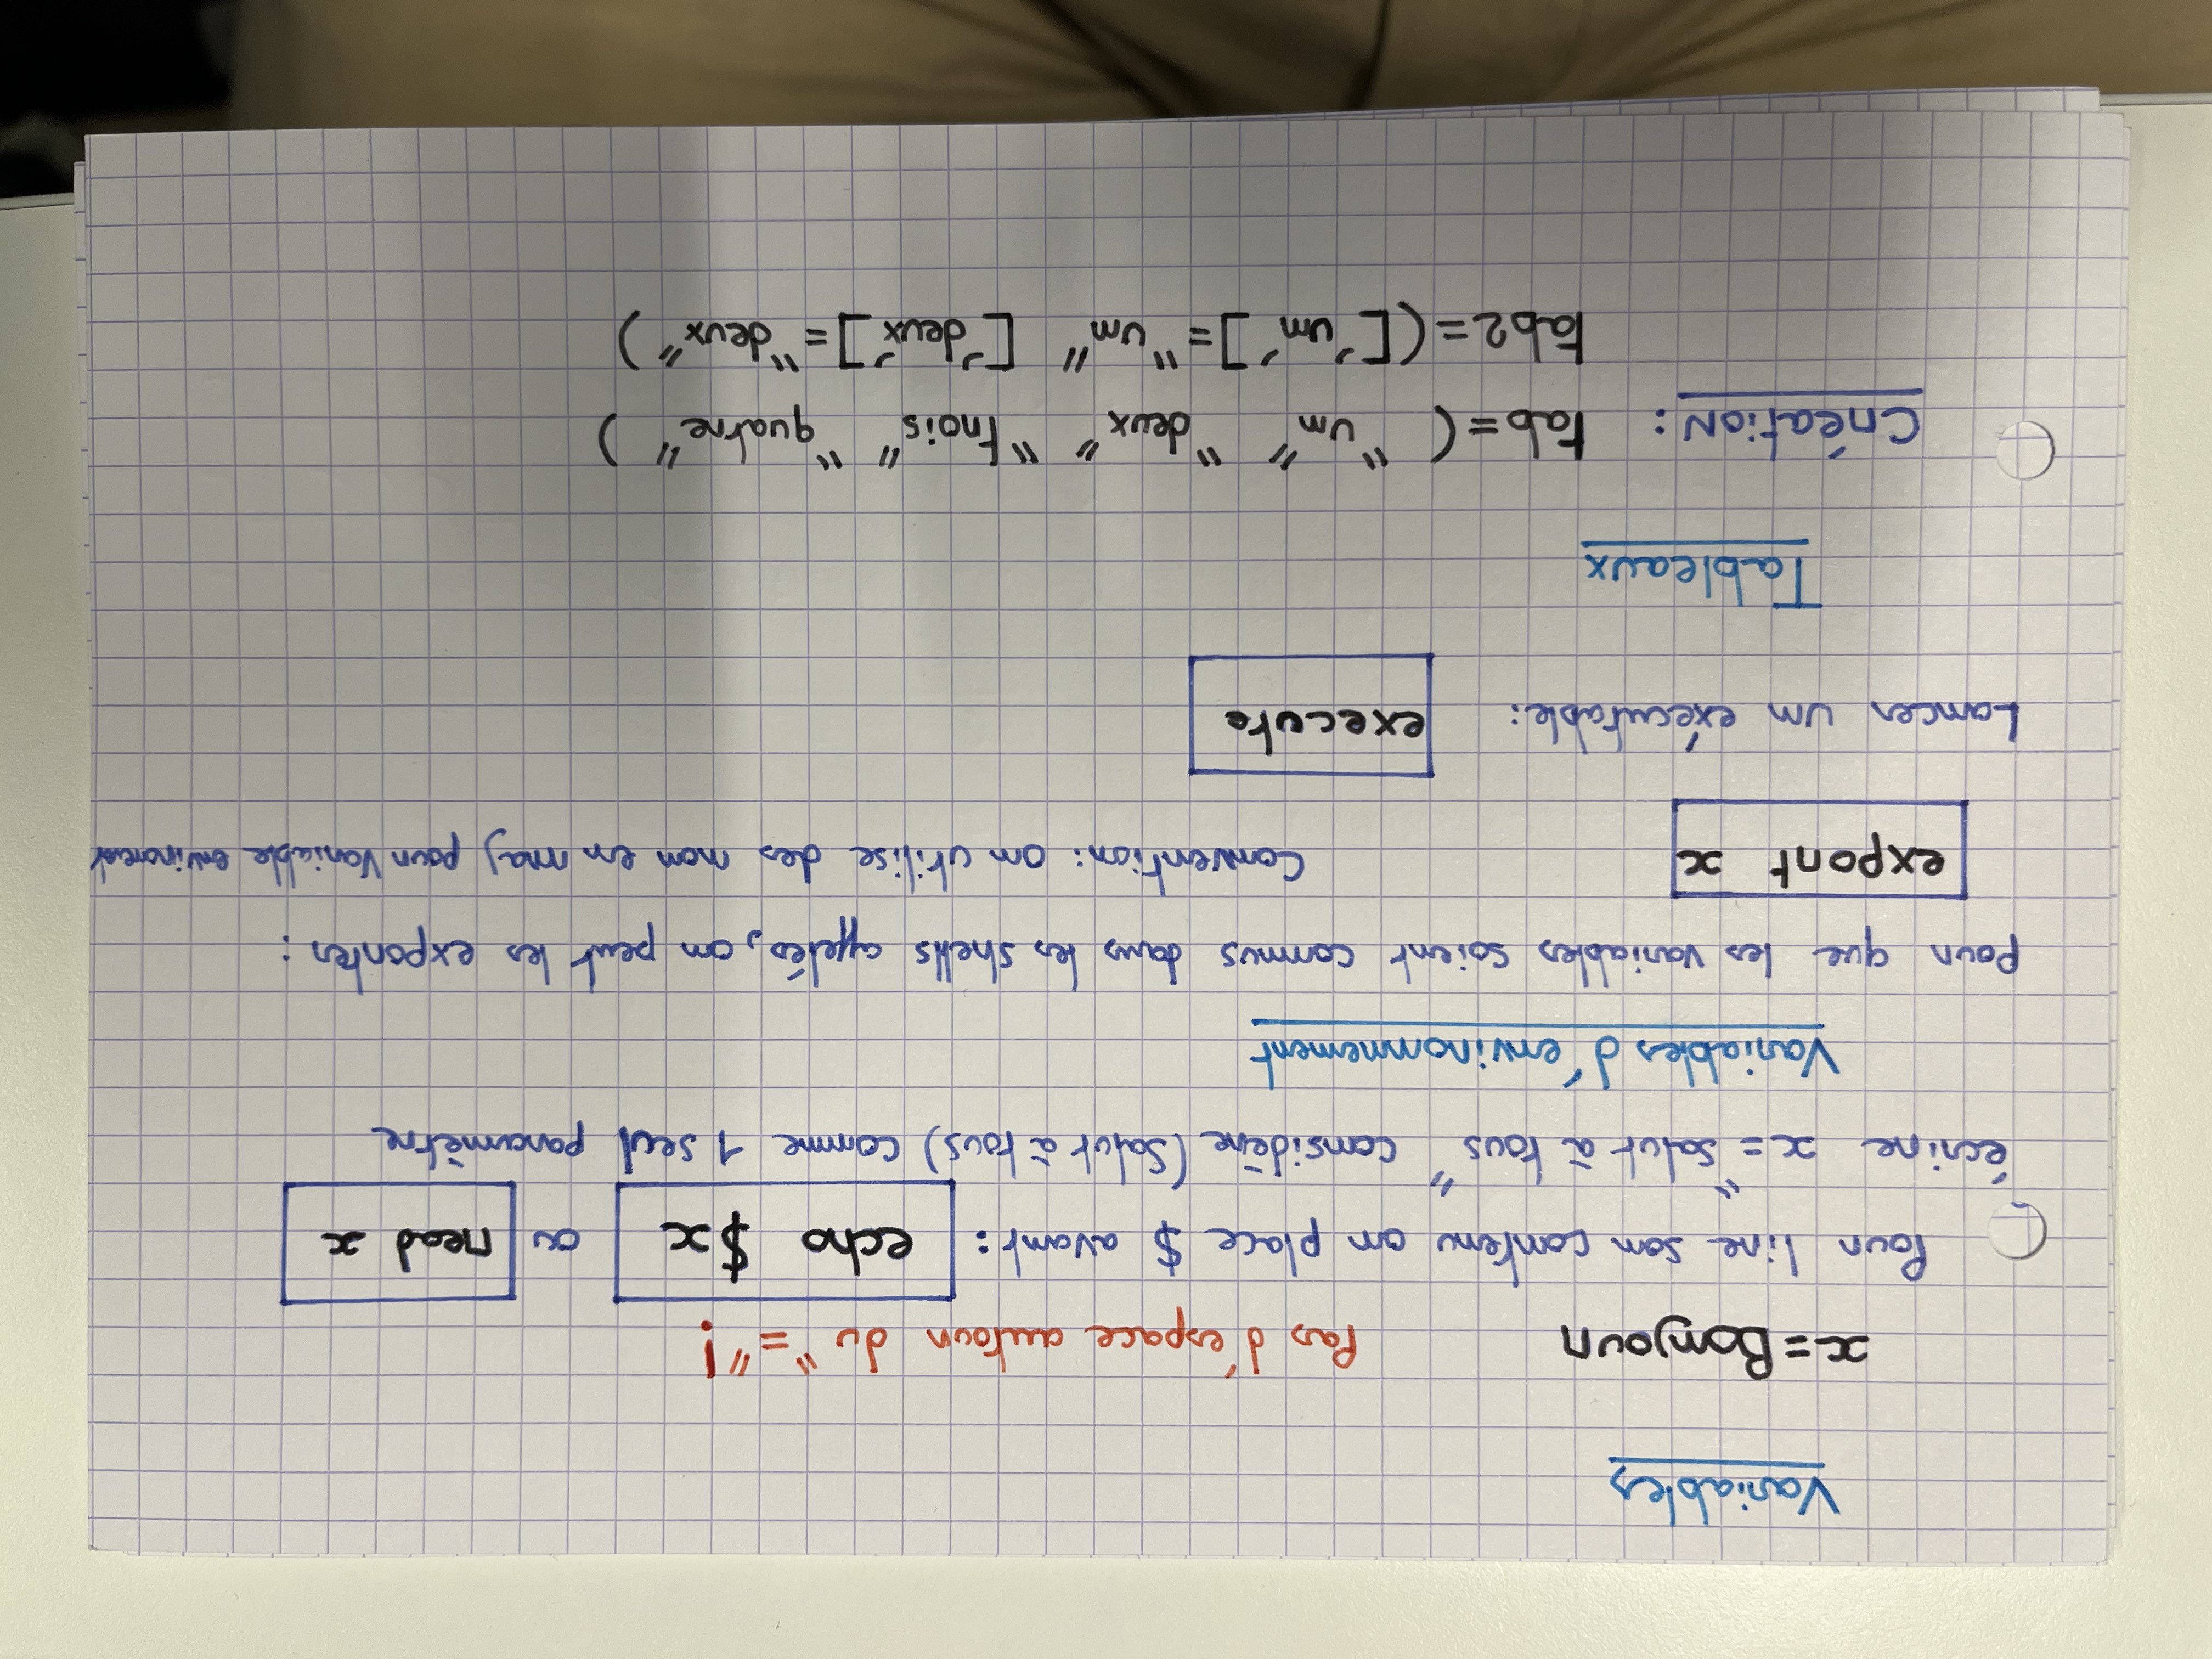 Variables
x=Bonjour Pas d'espace autour du "="!
Pour lire son contenu on place $ avant: echo $x ou read x
écrire x="salut à tous" considère (Salut à tous) comme 1 seul paramètre
Variables d'environnement
pour que les variables soient connus dans les shells appelés, on peut les exporter:
export x Convention: on utilise des nom en maj pour Variable
Lancer un exécutable: execute
Tableaux
Création: tab=( "un" "deux" "trois" "quatre" )
tab2=(['un']="un" ['deux']="deux")